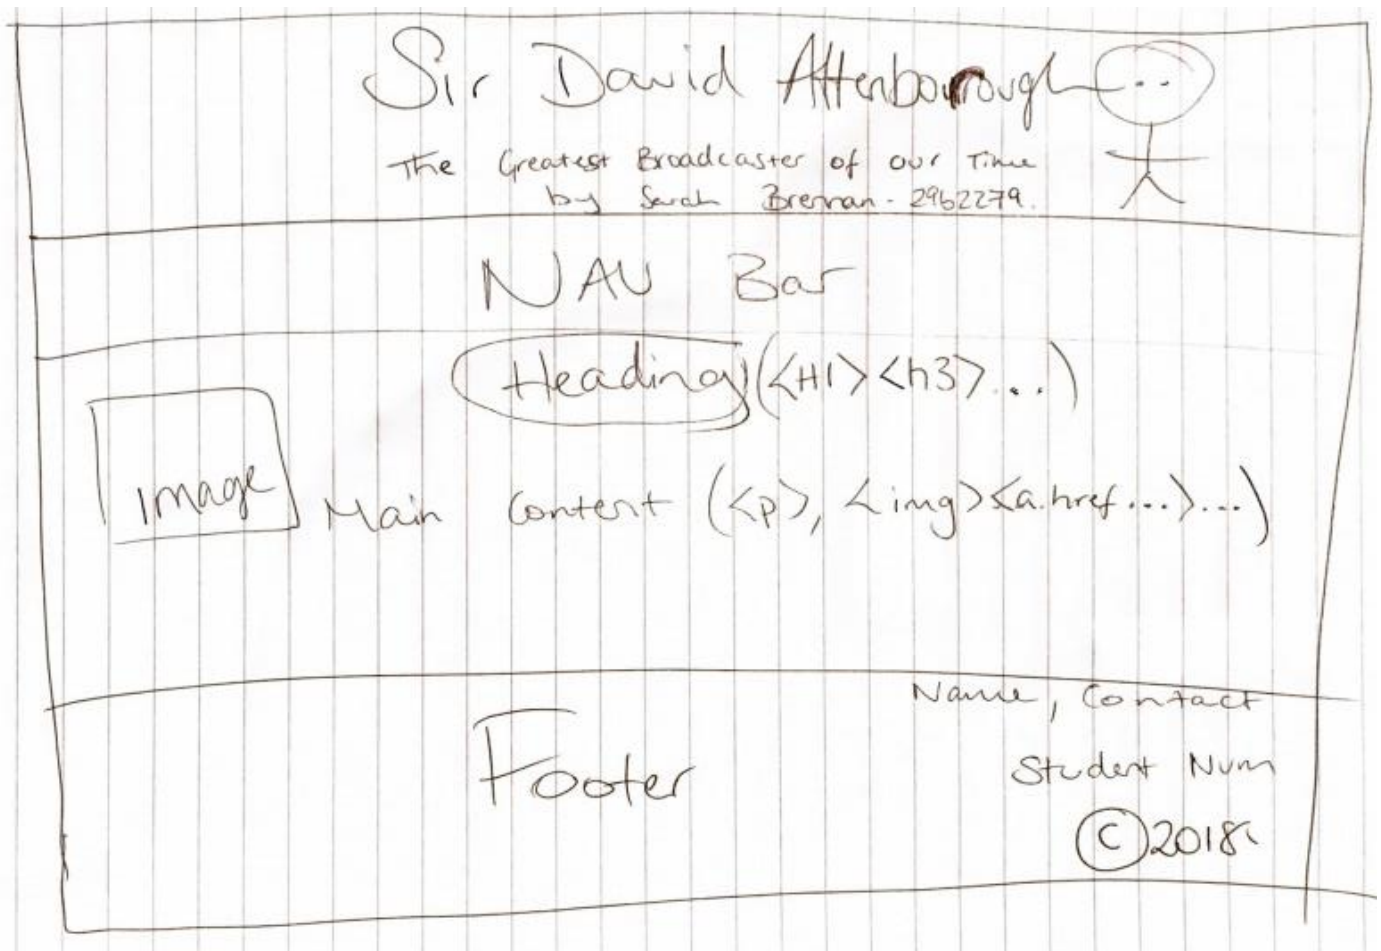 Sir David Attenborough
The Greatest Broadcaster of our Time
by Sarah Brennan - 2962279.
NAV Bar
Heading (<H1> <h3>...)
Image
Main Content (<p>, <img> <a.href...>...)
Name, Contact
Footer
Student Num
© 2018